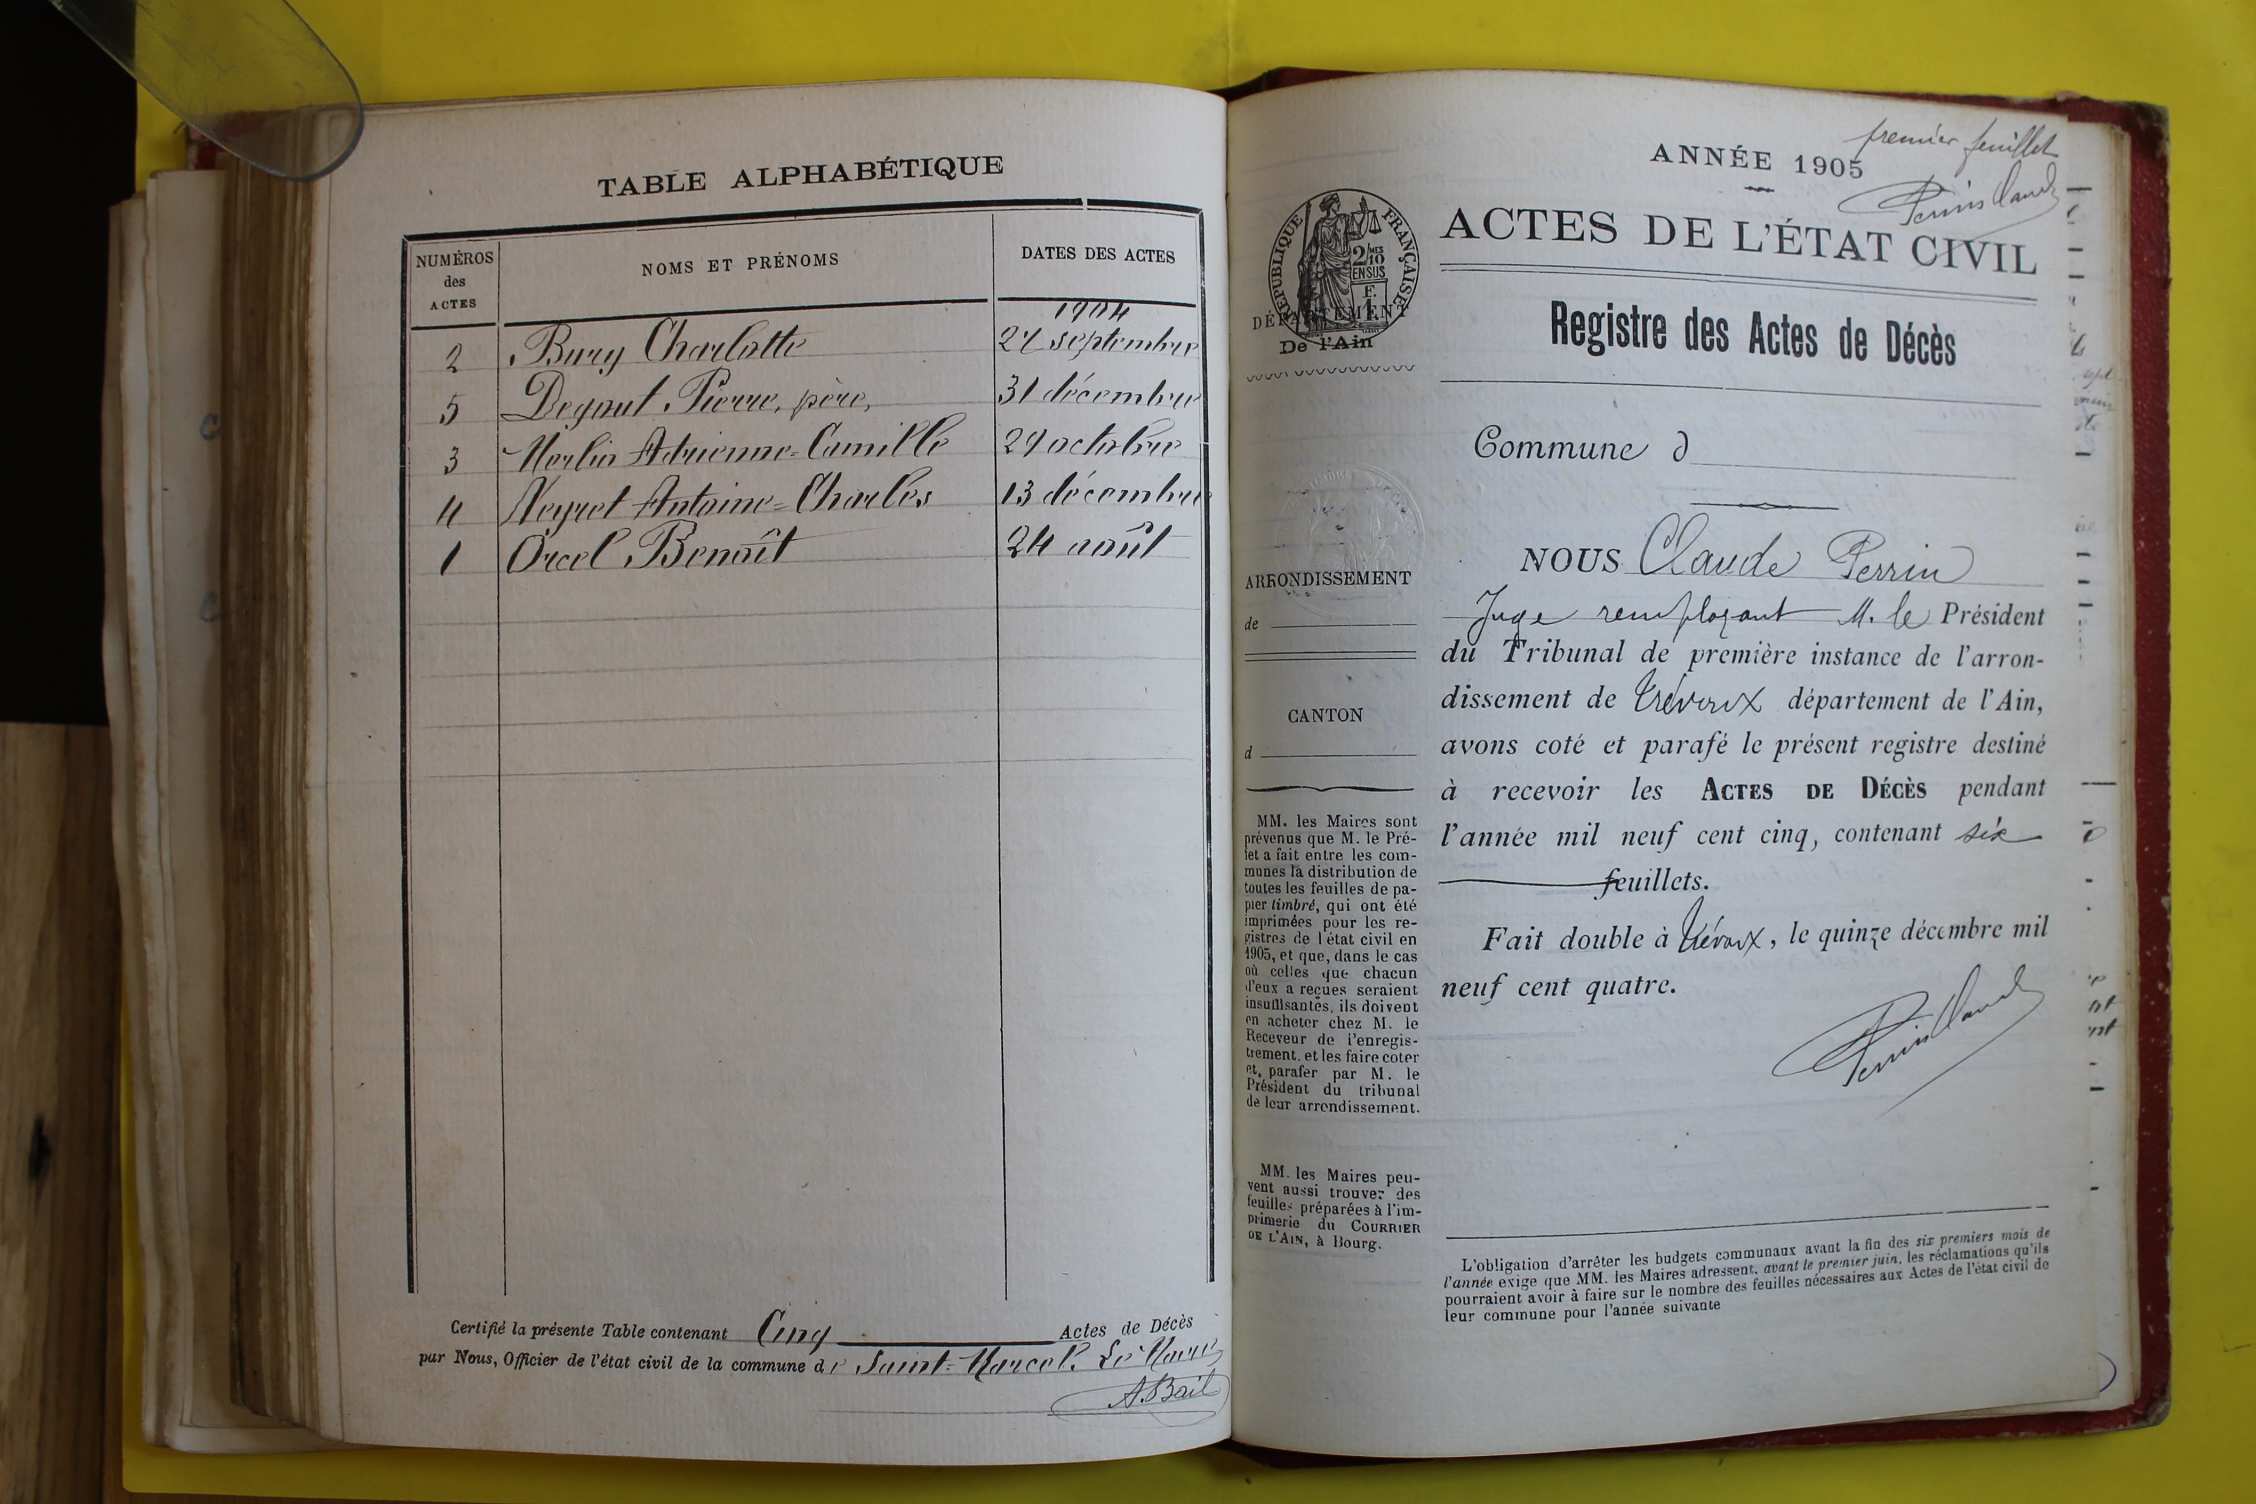 TABLE ALPHABÉTIQUE
NUMÉROS
des
ACTES
NOMS ET PRÉNOMS
DATES DES ACTES
1904
2 Bury Charlotte 27 septembre
5 Degout Pierre, père, 31 décembre
3 Merlin Adrienne-Camille 29 octobre
4 Neyret Antoine-Charles 13 décembre
1 Orcel Benoît 24 août
Certifié la présente Table contenant Cinq Actes de Décès
par Nous, Officier de l'état civil de la commune de Saint-Marcel. Le Maire,
A. Bail
premier feuillet
Perrin Claude
ANNÉE 1905
ACTES DE L'ÉTAT CIVIL
Registre des Actes de Décès
RÉPUBLIQUE FRANÇAISE
2/10 MES
EN SUS
F.
1
DÉPARTEMENT
De l'Ain
ARRONDISSEMENT
de
CANTON
d
MM. les Maires sont
prévenus que M. le Pré-
fet a fait entre les com-
munes la distribution de
toutes les feuilles de pa-
pier timbré, qui ont été
imprimées pour les re-
gistres de l'état civil en
1905, et que, dans le cas
où celles que chacun
d'eux a reçues seraient
insuffisantes, ils doivent
en acheter chez M. le
Receveur de l'enregis-
trement, et les faire coter
et parafer par M. le
Président du tribunal
de leur arrondissement.
MM. les Maires peu-
vent aussi trouver des
feuilles préparées à l'im-
primerie du COURRIER
DE L'AIN, à Bourg.
Commune d
NOUS Claude Perrin
Juge remplaçant M. le Président
du Tribunal de première instance de l'arron-
dissement de Trévoux département de l'Ain,
avons coté et parafé le présent registre destiné
à recevoir les ACTES DE DÉCÈS pendant
l'année mil neuf cent cinq, contenant six
feuillets.
Fait double à Trévoux, le quinze décembre mil
neuf cent quatre.
Perrin Claude
L'obligation d'arrêter les budgets communaux avant la fin des six premiers mois de
l'année exige que MM. les Maires adressent, avant le premier juin, les réclamations qu'ils
pourraient avoir à faire sur le nombre des feuilles nécessaires aux Actes de l'état civil de
leur commune pour l'année suivante